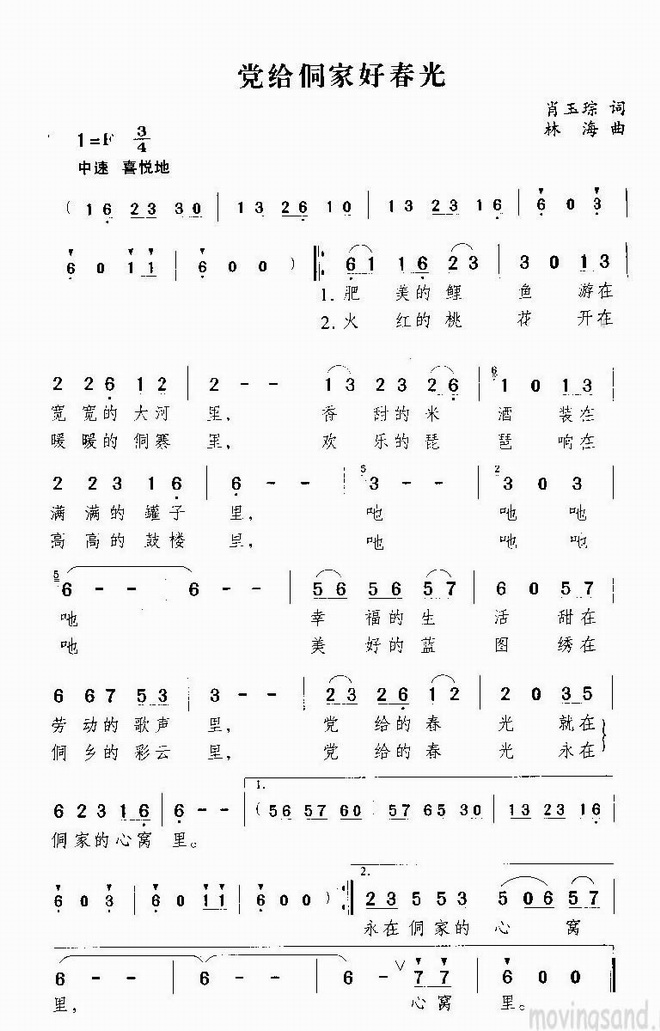 党给侗家好春光
肖玉琮 词
林 海 曲
1=F 3/4
中速 喜悦地
( 1 6 2 3 3 0 | 1 3 2 6 1 0 | 1 3 2 3 1 6 | 6 0 3 |
6 0 1 1 | 6 0 0 ) |: 6 1 1 6 2 3 | 3 0 1 3 |
1. 肥 美的 鲤 鱼 游在
2. 火 红的 桃 花 开在
2 2 6 1 2 | 2 - - | 1 3 2 3 2 6 | 6 1 0 1 3 |
宽 宽的 大河 里, 香 甜的 米 酒 装在
暖 暖的 侗寨 里, 欢 乐的 琵 琶 响在
2 2 3 1 6 | 6 - - | 5 3 - - | 2 3 0 3 |
满 满的 罐子 里, 吔 吔 吔
高 高的 鼓楼 里, 吔 吔 吔
5 6 - - | 6 - - | 5 6 5 6 5 7 | 6 0 5 7 |
吔 幸 福的 生 活 甜在
吔 美 好的 蓝 图 绣在
6 6 7 5 3 | 3 - - | 2 3 2 6 1 2 | 2 0 3 5 |
劳 动的 歌声 里, 党 给的 春 光 就在
侗 乡的 彩云 里, 党 给的 春 光 永在
1.
6 2 3 1 6 | 6 - - | ( 5 6 5 7 6 0 | 5 7 6 5 3 0 | 1 3 2 3 1 6 |
侗家的心窝 里。
2.
6 0 3 | 6 0 1 1 | 6 0 0 ) :| 2 3 5 5 3 | 5 0 6 5 7 |
永在侗家的 心 窝
6 - - | 6 - - | 6 - 7 7 | 6 0 0 |
里, 心窝 里。
movingsand.